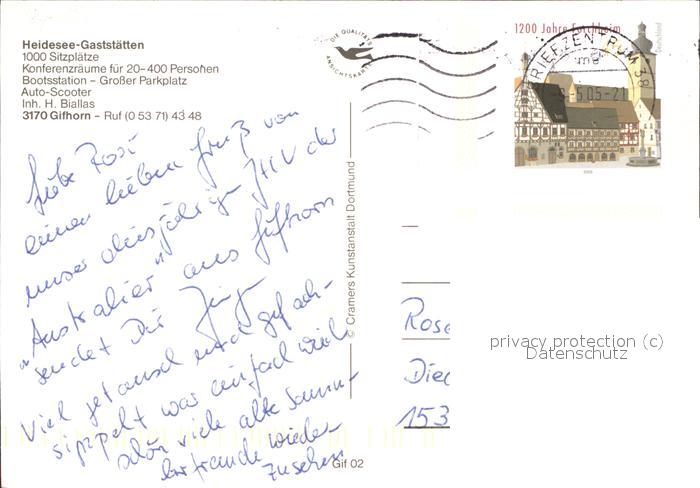 Heidesee-Gaststätten
1000 Sitzplätze
Konferenzräume für 20-400 Personen
Bootsstation – Großer Parkplatz
Auto-Scooter
Inh. H. Biallas
3170 Gifhorn – Ruf (0 53 71) 43 48
Liebe Rosi
einen lieben Gruß von
unser diesjährigen JHV der
"Australier" aus Gifhorn
sendet Dir Jürgen
Viel getauscht und gefach-
simpelt war einfach
schön viele alte Samm-
lerfreunde wieder-
zusehen
DIE QUALITÄTS
ANSICHTSKARTE
© Cramers Kunstanstalt Dortmund
Gif 02
1200 Jahre Forchheim
Deutschland
BRIEFZENTRUM 38
mg
5.05-21
Rose
Died
153
privacy protection (c)
Datenschutz